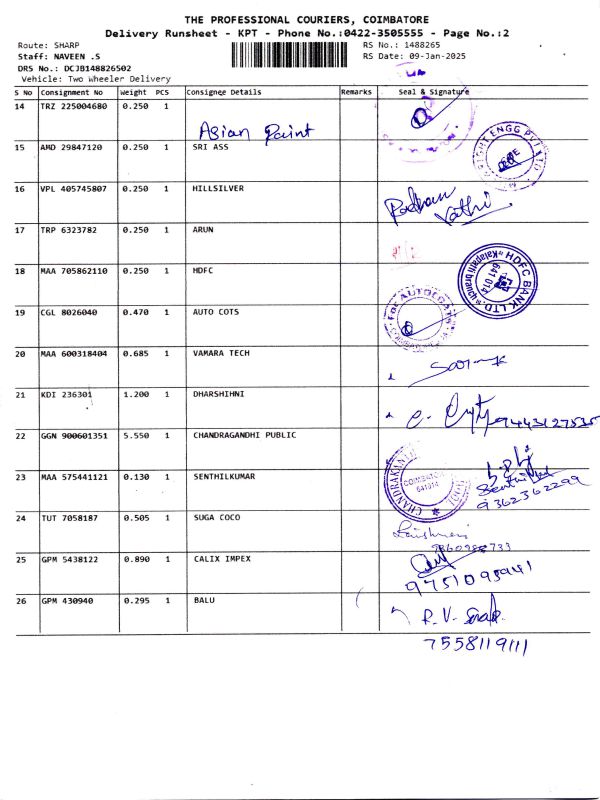 THE PROFESSIONAL COURIERS, COIMBATORE
Delivery Runsheet - KPT - Phone No.:0422-3505555 - Page No.:2
Route: SHARP RS No.: 1488265
Staff: NAVEEN .S RS Date: 09-Jan-2025
DRS No.: DCJB148826502
Vehicle: Two Wheeler Delivery
S No Consignment No Weight PCS Consignee Details Remarks Seal & Signature
14 TRZ 225004680 0.250 1
Asian Paint
15 AMD 29847120 0.250 1 SRI ASS
16 VPL 405745807 0.250 1 HILLSILVER
17 TRP 6323782 0.250 1 ARUN
18 MAA 705862110 0.250 1 HDFC
HDFC BANK LTD
641 014
19 CGL 8026040 0.470 1 AUTO COTS
For AUTOCOTS
20 MAA 600318404 0.685 1 VAMARA TECH
21 KDI 236301 1.200 1 DHARSHIHNI
9443127535
22 GGN 900601351 5.550 1 CHANDRAGANDHI PUBLIC
COIMBATORE
641014
23 MAA 575441121 0.130 1 SENTHILKUMAR
9362362299
24 TUT 7058187 0.505 1 SUGA COCO
25 GPM 5438122 0.890 1 CALIX IMPEX
9751095941
26 GPM 430940 0.295 1 BALU
R. V.
7558119111